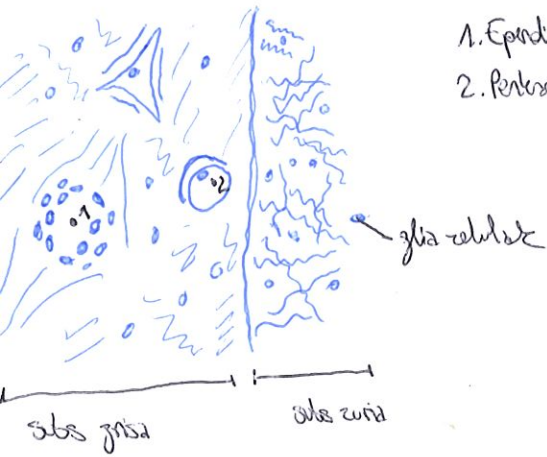 1. Epend
2. Perika
1
2
glia zelulak
subs grisa
subs zuria